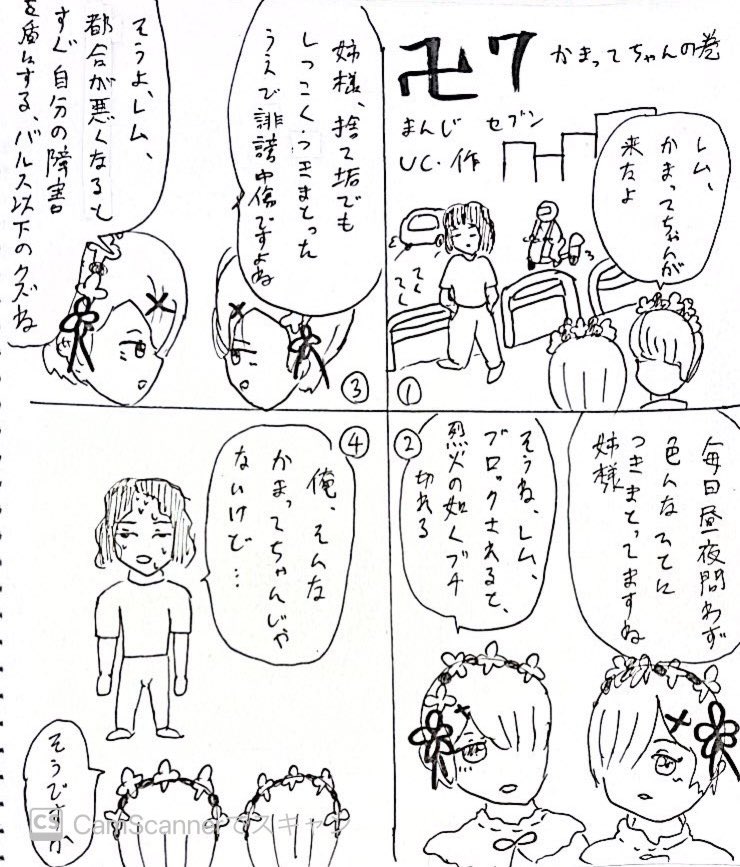 卍7 かまってちゃんの巻
まんじ セブン
UC.作
レム、
かまってちゃんが
来たよ
てく
てく
①
②
毎日昼夜問わず
色んな
つきまとってますね
姉様
そうね、レム、
ブロックされると、
烈火の如くブチ
切れる
③
姉様、捨て垢でも
しつこくつきまとった
うえで誹謗中傷ですよね
そうよ、レム、
都合が悪くなると
すぐ自分の障害
を盾にする、バルス以下のクズね
④
俺、そんな
かまってちゃんじゃ
ないけど…
そうですか
CS CamScannerでスキャン